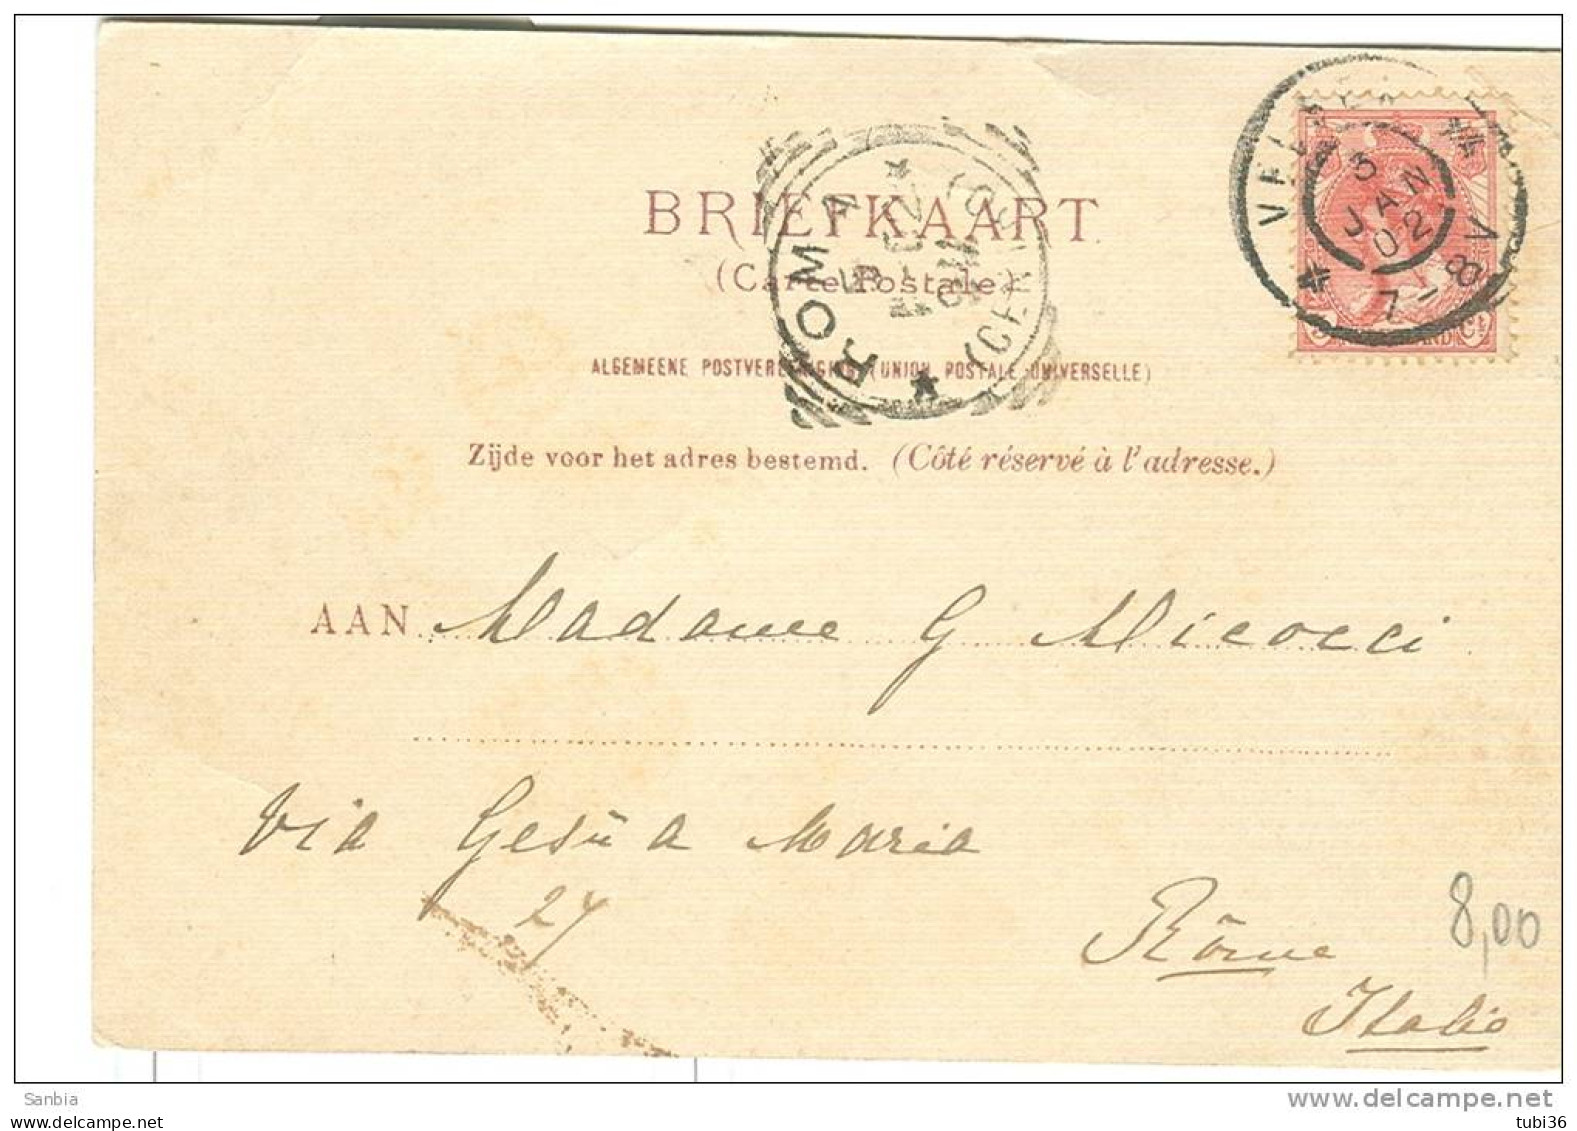 BRIEFKAART
(Carte Postale)
ALGEMEENE POSTVEREENIGING (UNION POSTALE UNIVERSELLE)
Zijde voor het adres bestemd. (Côté réservé à l'adresse.)
VELSEN
3
JAN
02
7-8 V
ROMA
AAN Madame G Micocci
Via Gesū a Maria
27
Rōme
Italie
8,00
Sanbia
delcampe.net
http://www.delcampe.net
tubi36